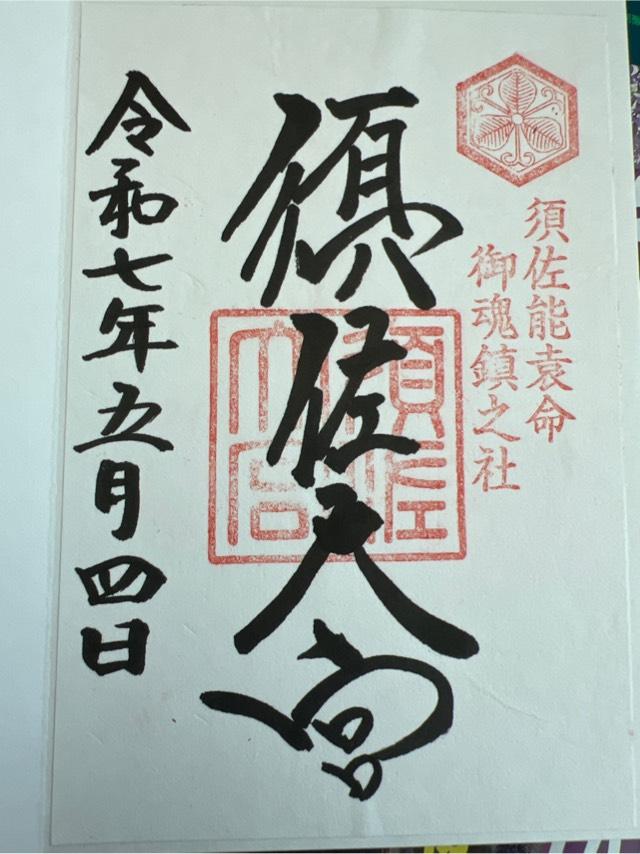 須佐能袁命
御魂鎮之社
須佐大宮
須佐大宮
令和七年五月四日